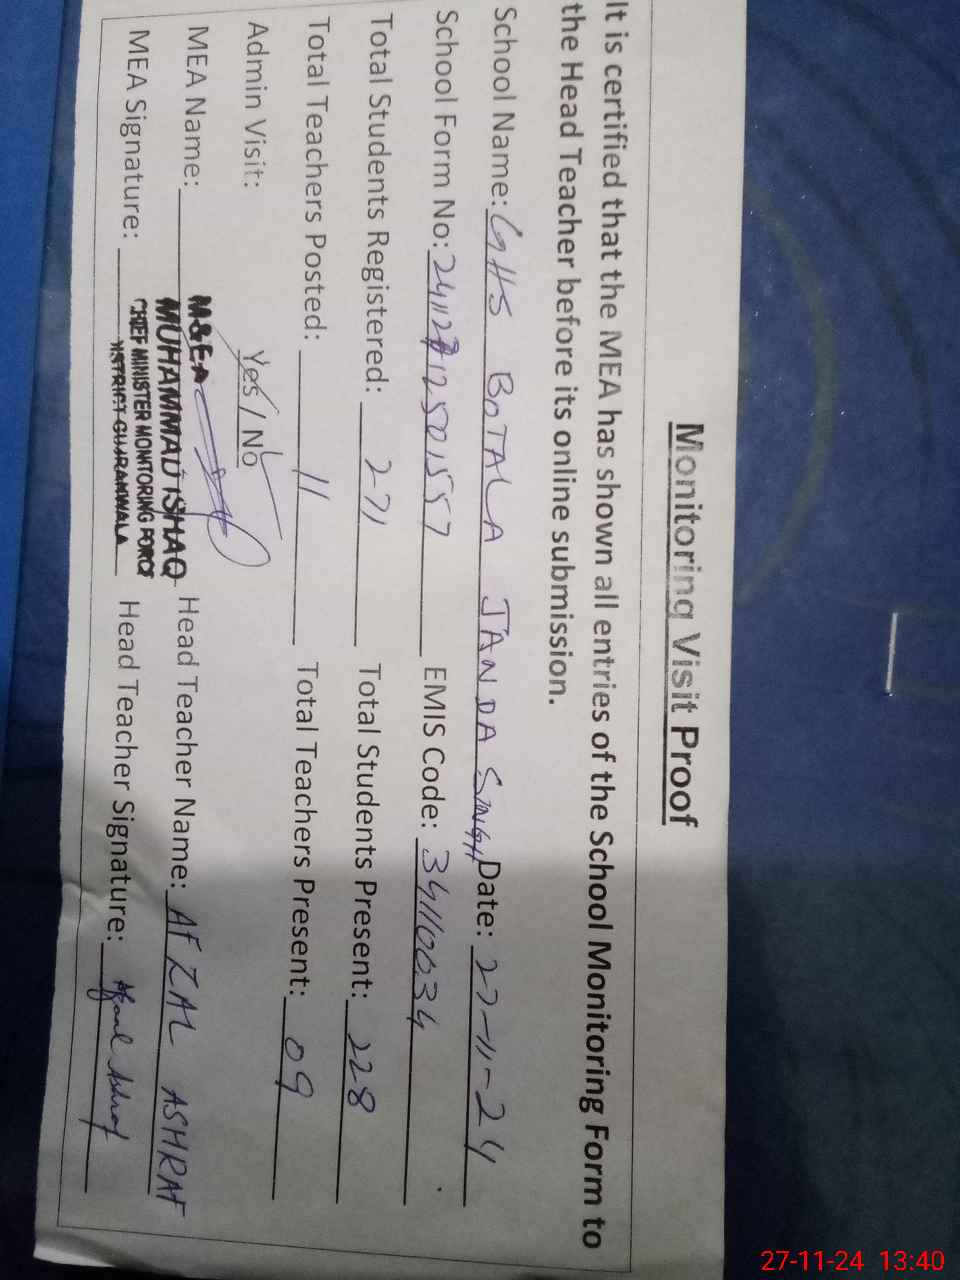 Monitoring Visit Proof
It is certified that the MEA has shown all entries of the School Monitoring Form to
the Head Teacher before its online submission.
School Name: GHS BOTALA JANDA SINGH Date: 27-11-24
School Form No: EMIS Code: 34110034
Total Students Registered: 271 Total Students Present: 228
Total Teachers Posted: 11 Total Teachers Present: 09
Admin Visit: Yes / No
M&EA
MEA Name: MUHAMMAD ISHAQ Head Teacher Name: AFZAL ASHRAF
CHIEF MINISTER MONITORING FORCE
MEA Signature: DISTRICT GUJRANWALA Head Teacher Signature: Afzal Ashraf
27-11-24 13:40